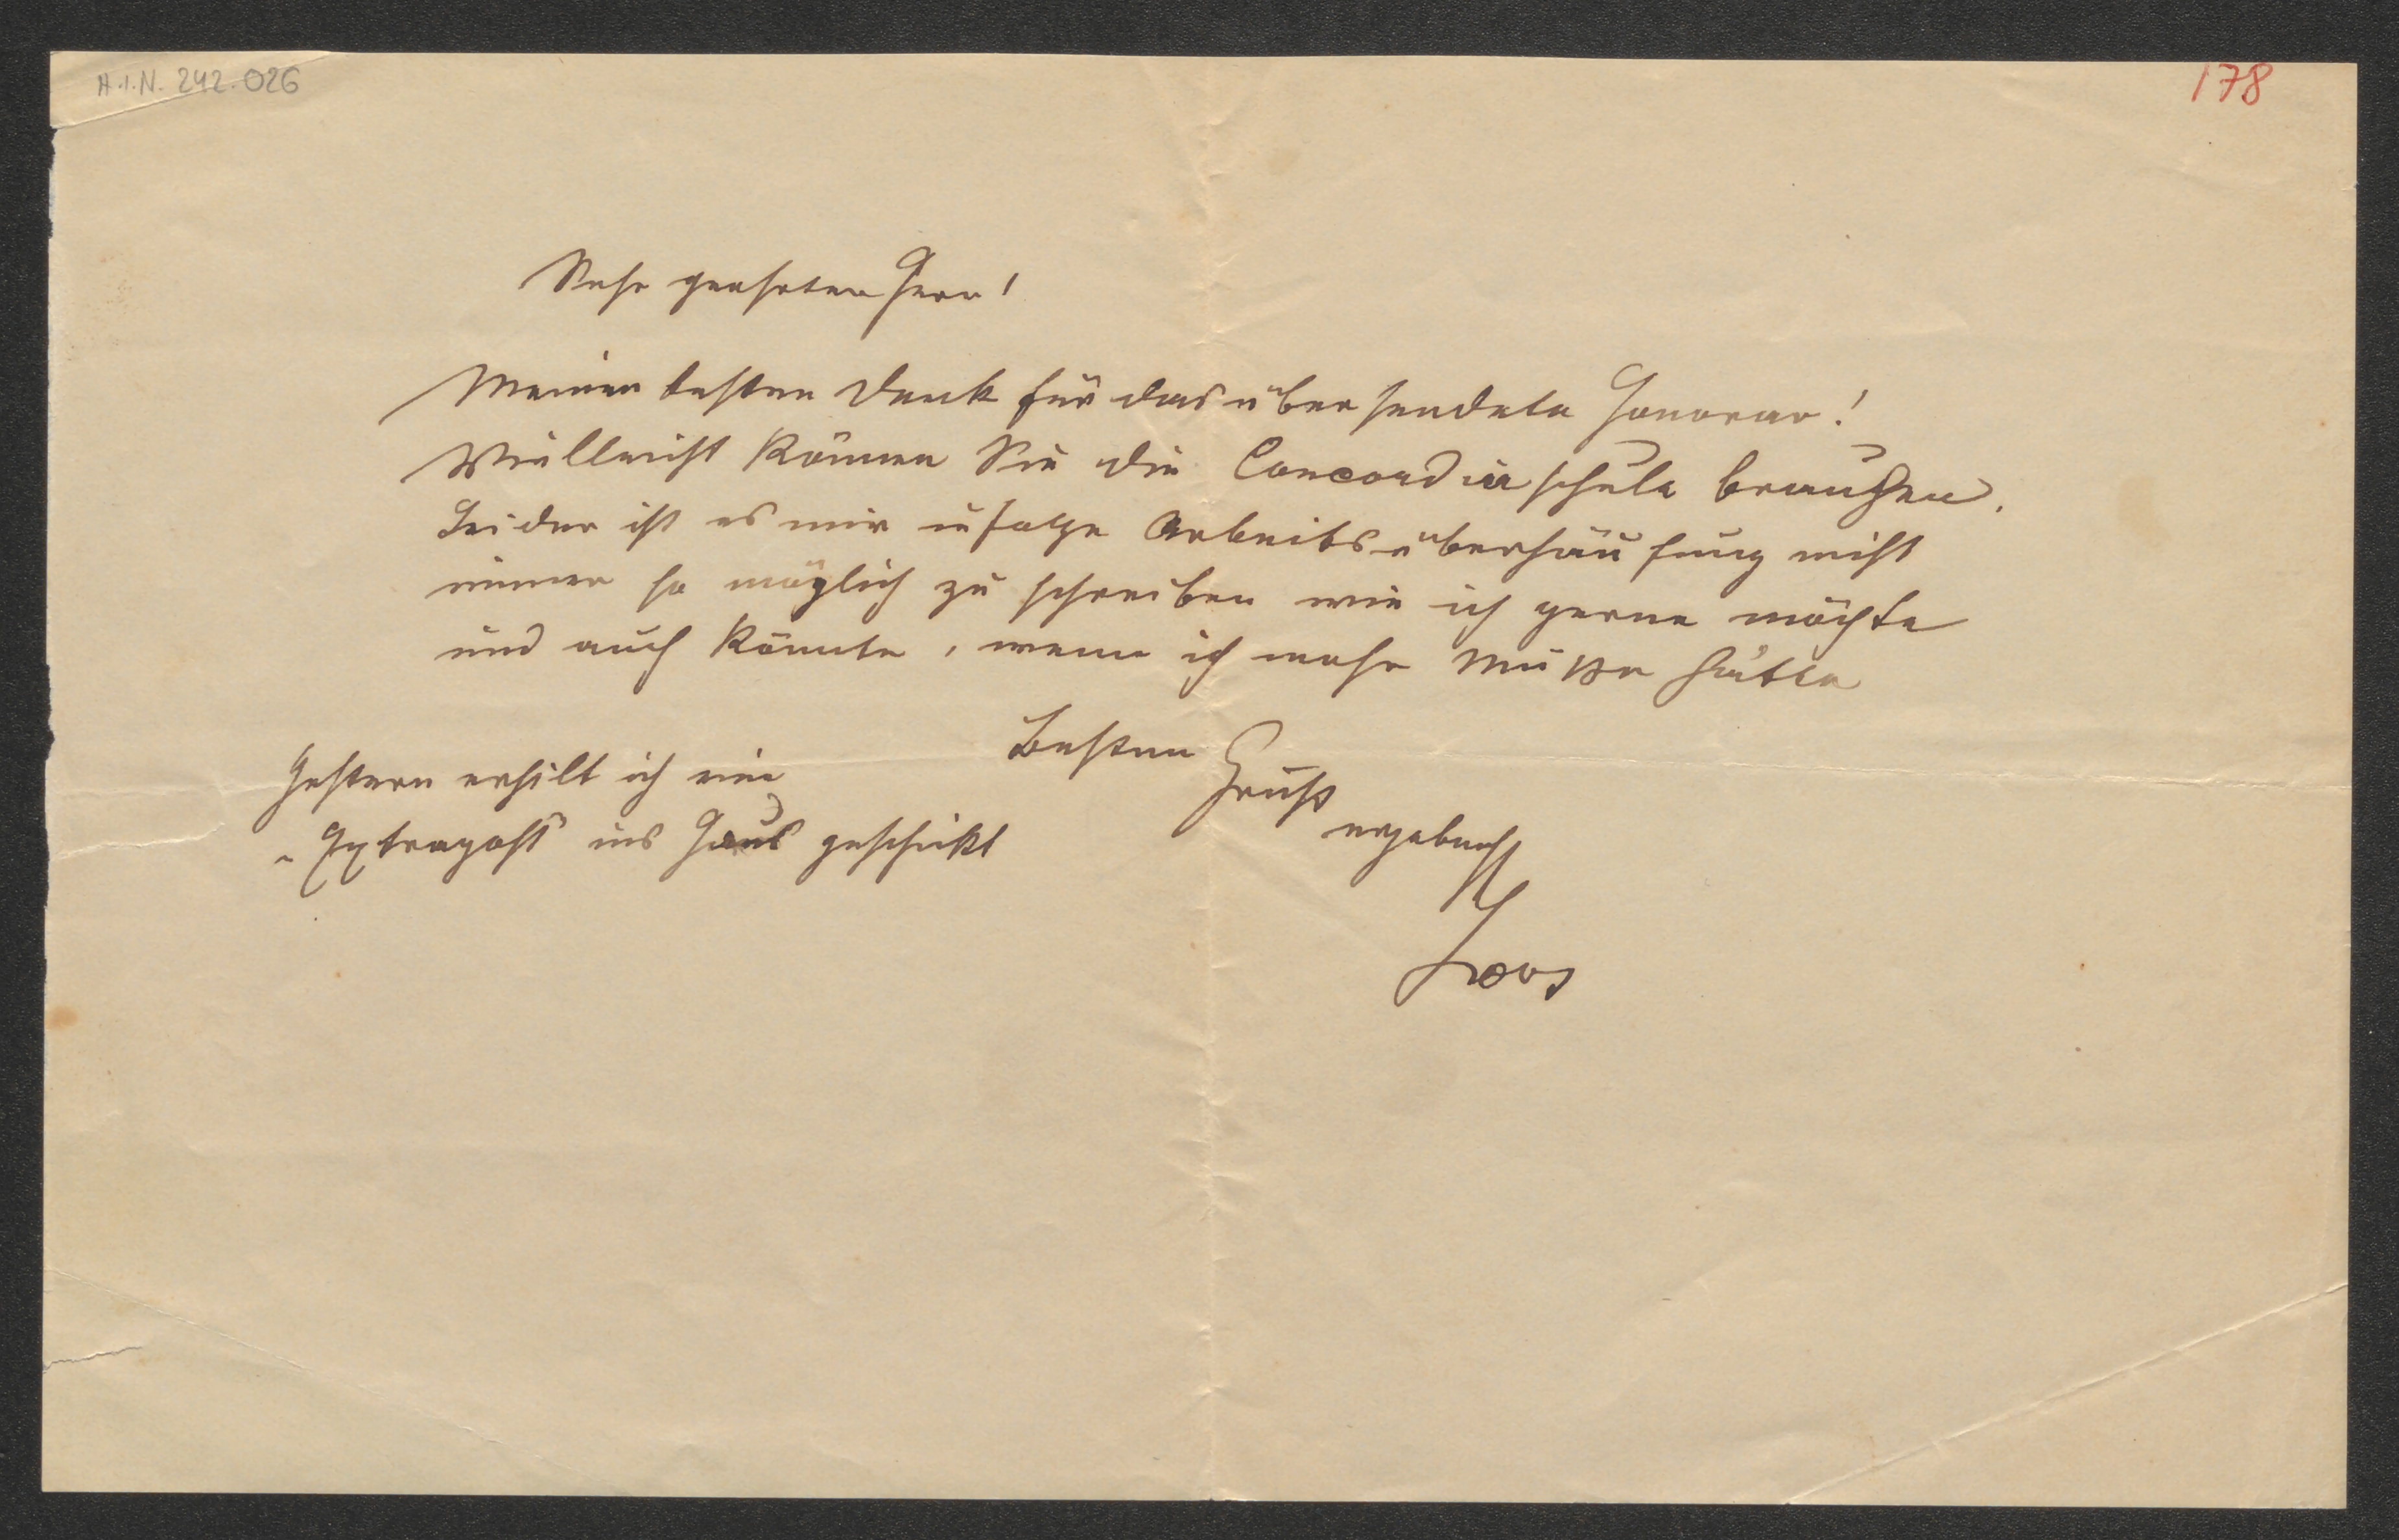 H.I.N. 242.026
178
Sehr geehrter Herr!
Meinen besten Dank für das übersendete Honorar!
Vielleicht können Sie die Concordiaschule brauchen.
Leider ist es mir infolge Arbeitsüberhäufung nicht
immer so möglich zu schreiben wie ich gerne möchte
und auch könnte, wenn ich mehr Muße hätte
Besten
Gruß
ergebenst
Loos
Gestern erhilt ich eine
"Extrapost" ins Haus geschikt